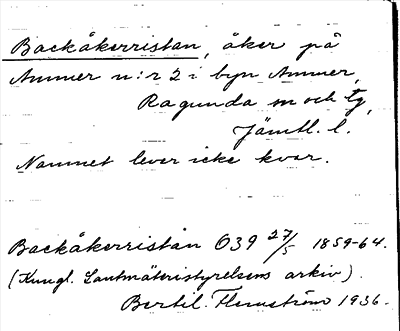 Backåkerristan, åker på
Ammer n:r 2 i byn Ammer,
Ragunda sn och tg,
Jämtl. l.
Namnet lever icke kvar.
Backåkerristan O39 27/5 1859-64.
(Kungl. Lantmäteristyrelsens arkiv).
Bertil Flemström 1936.